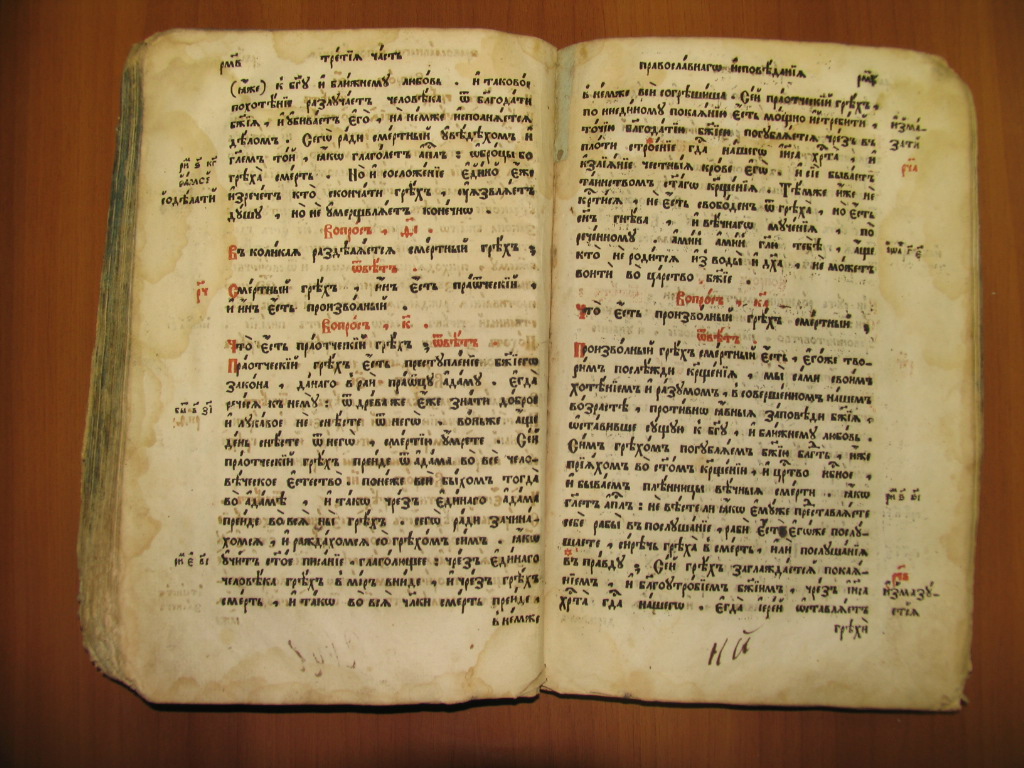 рмв
третїѧ часть
(ꙗ҆́же) к бг҃ꙋ и҆ бли́жнемꙋ любо́вь . и҆ таково́е
похотѣ́нїе разлꙋча́етъ человѣ́ка ѿ благода́ти
бж҃їѧ , и҆ ᲂу҆бива́етъ є҆го̀ , на не́мже и҆сполнѧ́етсѧ
дѣ́ломъ . Сегѡ̀ ра́ди сме́ртный ᲂу҆вѣ́дѣхомъ и҆
гл҃емъ то́й , ꙗ҆́кѡ глаго́летъ а҆пⷭ҇лъ : ѡ҆бро́цы бо
грѣха̀ сме́рть . Но и҆ сосложе́нїе є҆ди́но є҆́же
и҆зрече́тъ кто̀ сконча́ти грѣ́хъ , ᲂу҆ѧзвлѧ́етъ
дꙋ́шꙋ , но не ᲂу҆мерщвлѧ́етъ коне́чнѡ .
содѣлати
Вопро́съ , ѳ҃і .
Въ коли́каѧ раздѣлѧ́етсѧ сме́ртный грѣ́хъ ;
ѿвѣ́тъ .
рч
Сме́ртный грѣ́хъ , и҆́нъ є҆́сть пра́ѡтческїй ,
и҆ и҆́нъ є҆́сть произво́лный .
Вопро́съ , к҃ .
Что̀ є҆́сть пра́отческїй грѣ́хъ ; ѿвѣ́тъ .
Пра́отческїй грѣ́хъ є҆́сть престꙋпле́нїе бж҃їегѡ
зако́на , да́нагѡ в раѝ пра́ѡтцꙋ а҆да́мꙋ . є҆гда̀
рече́сѧ к немꙋ̀ : ѿ дре́ва же є҆́же зна́ти до́брое
и҆ лꙋка́вое не снѣ́сте ѿ негѡ̀ , во́ньже а҆́ще
де́нь снѣ́сте ѿ негѡ̀ , сме́ртїю ᲂу҆́мрете . Се́й
пра́отческїй грѣ́хъ пре́йде ѿ а҆да́ма во всѐ чело-
вѣ́ческое є҆стество̀ . поне́же всѝ бы́хомъ тогда̀
во а҆да́мѣ , и҆ та́кѡ чрезъ є҆ди́наго а҆да́ма
пре́йде во всѧ̀ ны̀ грѣ́хъ . сегѡ̀ ра́ди зачина́-
хомсѧ , и҆ ражда́хомсѧ со грѣхо́мъ си́мъ . ꙗ҆́кѡ
ᲂу҆чи́тъ ст҃о́е писа́нїе , глаго́лющее : чрезъ є҆ди́наго
человѣ́ка грѣ́хъ в мі́ръ вни́де , и҆ чрезъ грѣ́хъ
сме́рть , и҆ та́кѡ во всѧ̀ чл҃ки сме́рть пре́йде ,
в не́мже
православнагѡ и҆сповѣ́данїѧ
рмг
в не́мже всѝ согрѣши́ша . Се́й пра́отческїй грѣ́хъ ,
по ни є҆ди́номꙋ покаѧ́нїю є҆́сть мо́щно и҆стреби́ти ,
то́чїю благода́тїю бж҃їею погꙋблѧ́етсѧ чрезъ въ
пло́ти строе́нїе гдⷭ҇а на́шегѡ і҆и҃са хрⷭ҇та̀ , и҆
и҆злїѧ́нїе честны́ѧ кро́ве є҆гѡ̀ . и҆ сїѐ быва́етъ
та́инствомъ ст҃а́гѡ крⷭ҇ще́нїѧ . Тѣ́мже и҆́же не
крⷭ҇ти́сѧ , не є҆́сть свобо́денъ ѿ грѣха̀ , но є҆́сть
сн҃ъ гнѣ́ва , и҆ вѣ́чнагѡ мꙋче́нїѧ , по
рече́нномꙋ . а҆ми́нь а҆ми́нь гл҃ю тебѣ̀ , а҆́ще
кто̀ не роди́тсѧ и҆з воды̀ и҆ дх҃а , не мо́жетъ
вни́ти во ца́рство бж҃їе .
и҆з̾ма-
рч҃а
Вопро́съ , ка
Что̀ є҆́сть произво́лный грѣ́хъ сме́ртный ;
ѿвѣ́тъ
Произво́лный грѣ́хъ сме́ртный є҆́сть , є҆го́же тво-
ри́мъ послѣ́жди крⷭ҇ще́нїѧ , мы̀ са́ми свои́мъ
хотѣ́нїемъ и҆ ра́зꙋмомъ , в соверше́нномъ на́шемъ
во́зрастѣ , проти́внѡ ꙗ҆́вныѧ за́повѣди бж҃їѧ ,
ѡ҆ста́вивше сꙋ́щꙋю к бг҃ꙋ , и҆ бли́жнемꙋ любо́вь .
Си́мъ грѣхо́мъ погꙋблѧ́емъ бж҃їю блгⷣть , ю҆́же
прїѧ́хомъ во ст҃о́мъ крⷭ҇ще́нїи , и҆ црⷭ҇тво нбⷭ҇ное ,
и҆ быва́емъ плѣ́нницы вѣ́чныѧ сме́рти . ꙗ҆́кѡ
гл҃етъ а҆пⷭ҇лъ : не вѣ́сте ли ꙗ҆́кѡ є҆мꙋ́же преставлѧ́ете
себѐ рабы̀ въ послꙋша́нїе , рабѝ є҆стѐ є҆гѡ́же послꙋ-
шаете , си́рѣчь грѣха̀ в сме́рть , и҆лѝ послꙋша́нїѧ
въ пра́вдꙋ ; Се́й грѣ́хъ заглажда́етсѧ покаѧ́-
нїемъ , и҆ благоꙋтро́бїемъ бж҃їимъ , чрезъ і҆и҃са
хрⷭ҇та̀ гдⷭ҇а на́шегѡ . є҆гда̀ і҆ере́й ѡ҆ставлѧ́етъ
и҆з̾мазꙋ-
грѣхѝ